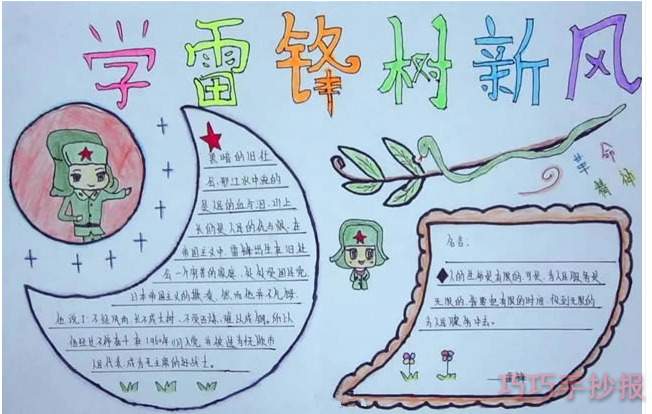 学雷锋树新风
革命
黑暗的旧社
会,那江水中来的
是人民的血与泪,川上
长的是人民的仇与恨,在
帝国主义中,雷锋出生在旧社
会一个穷苦的家庭,
日本帝国主义的
他说了:不经风雨,长不成大树,不受百炼,难以成钢。所以
他经过不懈奋斗在1960年11月入党并被选为抚顺市
人民代表,成为毛主席的好战士。
名言:
◆人的生命是有限的可是,为人民服务是
无限的,我要把有限的时间,投到无限的
为人民服务中去。
——雷锋
巧巧手抄报